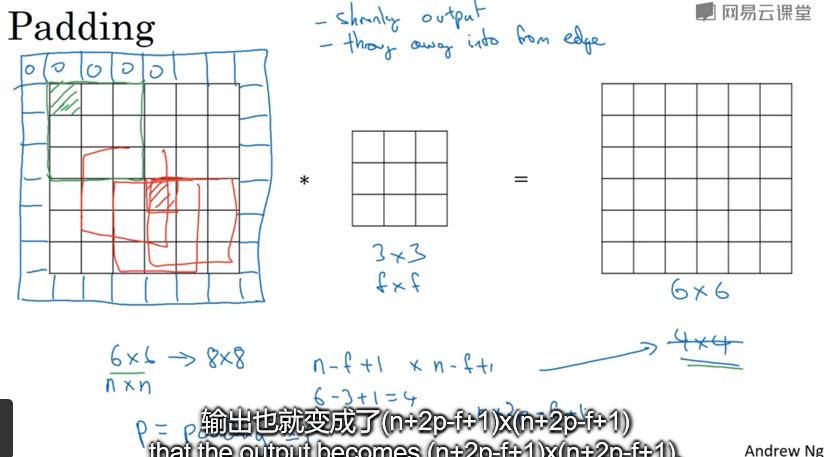 Padding
- shrinky output
- throw away info from edge
网易云课堂
0 0 0 0 0
*
=
3×3
f×f
6×6
6×6 → 8×8
n×n
n-f+1 × n-f+1
4×4
6-3+1=4
p = padding = 1
输出也就变成了(n+2p-f+1)x(n+2p-f+1)
that the output becomes (n+2p-f+1)x(n+2p-f+1).
Andrew Ng